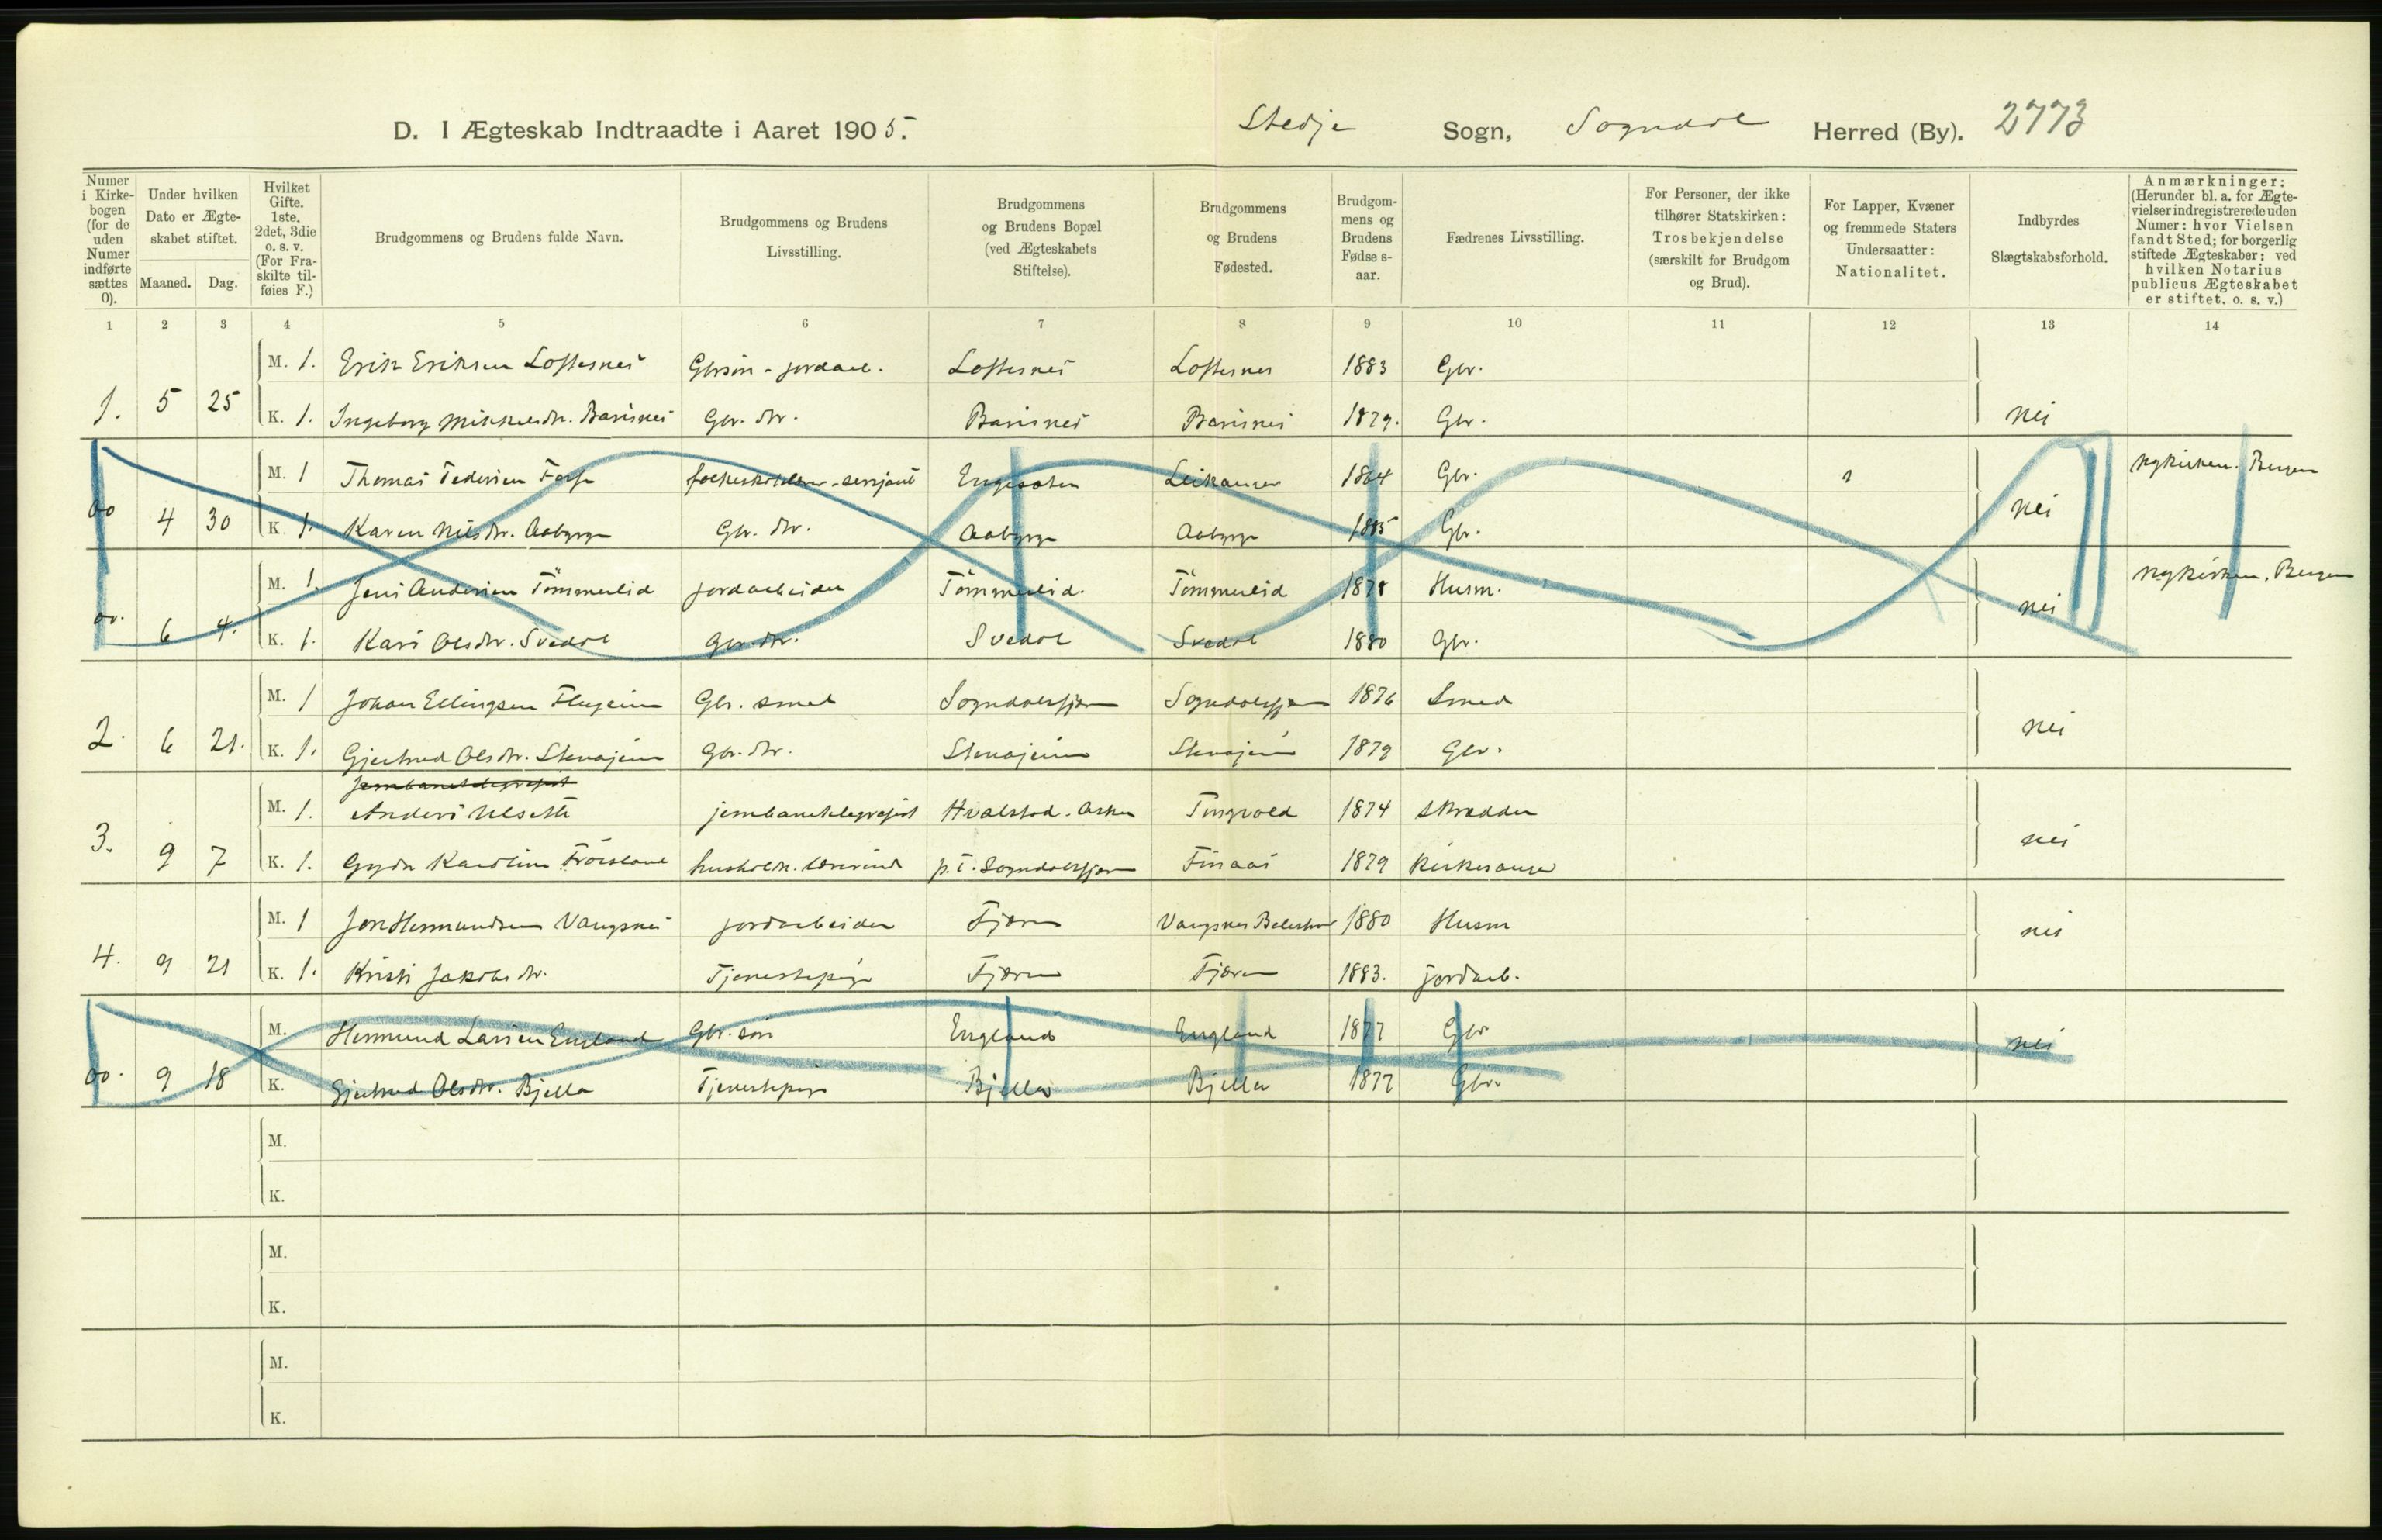 D. I Ægteskab Indtraadte i Aaret 1905. Stedje Sogn, Sogndal Herred (By). 2773
Numer i Kirkebogen (for de uden Numer indførte sættes 0).
Under hvilken Dato er Ægteskabet stiftet.
Maaned. Dag.
Hvilket Gifte. 1ste, 2det, 3die o. s. v. (For Fraskilte tilføies F.)
Brudgommens og Brudens fulde Navn.
Brudgommens og Brudens Livsstilling.
Brudgommens og Brudens Bopæl (ved Ægteskabets Stiftelse).
Brudgommens og Brudens Fødested.
Brudgommens og Brudens Fødselsaar.
Fædrenes Livsstilling.
For Personer, der ikke tilhører Statskirken: Trosbekjendelse (særskilt for Brudgom og Brud).
For Lapper, Kvæner og fremmede Staters Undersaatter: Nationalitet.
Indbyrdes Slægtskabsforhold.
Anmærkninger: (Herunder bl. a. for Ægtevielser indregistrerede uden Numer: hvor Vielsen fandt Sted; for borgerlig stiftede Ægteskaber: ved hvilken Notarius publicus Ægteskabet er stiftet. o. s. v.)
1 2 3 4 5 6 7 8 9 10 11 12 13 14
M. 1. Erik Eriksen Loftesnes Gbrsön - jordarb. Loftesnes Loftesnes 1883 Gbr.
1. 5 25 K. 1. Ingeborg Mikkelsdr. Barsnes Gbr. dtr. Barsnes Barsnes 1879. Gbr. nei
M. 1 Thomas Pedersen Engesæter Leikanger 1864 Gbr. Nykirken. Bergen
00 4 30 K. 1. Karen Nilsdtr. Aaberge Gbr. dtr. Aaberge Aaberge 1885 Gbr. nei
M. 1. Jens Andersen Tömmerlid jordarbeider Tömmerlid. Tömmerlid 1878 Husm. Nykirken. Bergen
00. 6 4. K. 1. Kari Olsdtr. Svedal Gbr. dtr. Svedal Svedal 1880 Gbr. nei
M. 1 Johan Ellingsen Flugeim Gbr. smed Sogndalsfjæren Sogndalsfjæren 1876 Smed
2. 6 21. K. 1. Gjertrud Olsdtr. Stenajeim Gbr. dtr. Stenajeim Stenajeim 1879 Gbr. nei
jernbanetelegrafist
M. 1. Anders Ulseth jernbanetelegrafist Hvalstad. Asker Tingvold 1874 Skrædder
3. 9 7 K. 1. Gyda Karoline Fröisland husholdn. lærerinde p.t. Sogndalsfjæren Finaas 1879 Kirkesanger nei
M. 1 Jon Hermundsen Vangsnes jordarbeider Fjæren Vangsnes Balestrand 1880 Husm
4. 9 21 K. 1. Kristi Jakobsdtr. Tjenestepige Fjæren Fjæren 1883. jordarb. nei
M. Hermund Larsen England Gbr. sön England England 1877 Gbr
00. 9 18 K. Gjertrud Olsdtr. Bjella Tjenestepige Bjella Bjella 1877 Gbr. nei
M.
K.
M.
K.
M.
K.